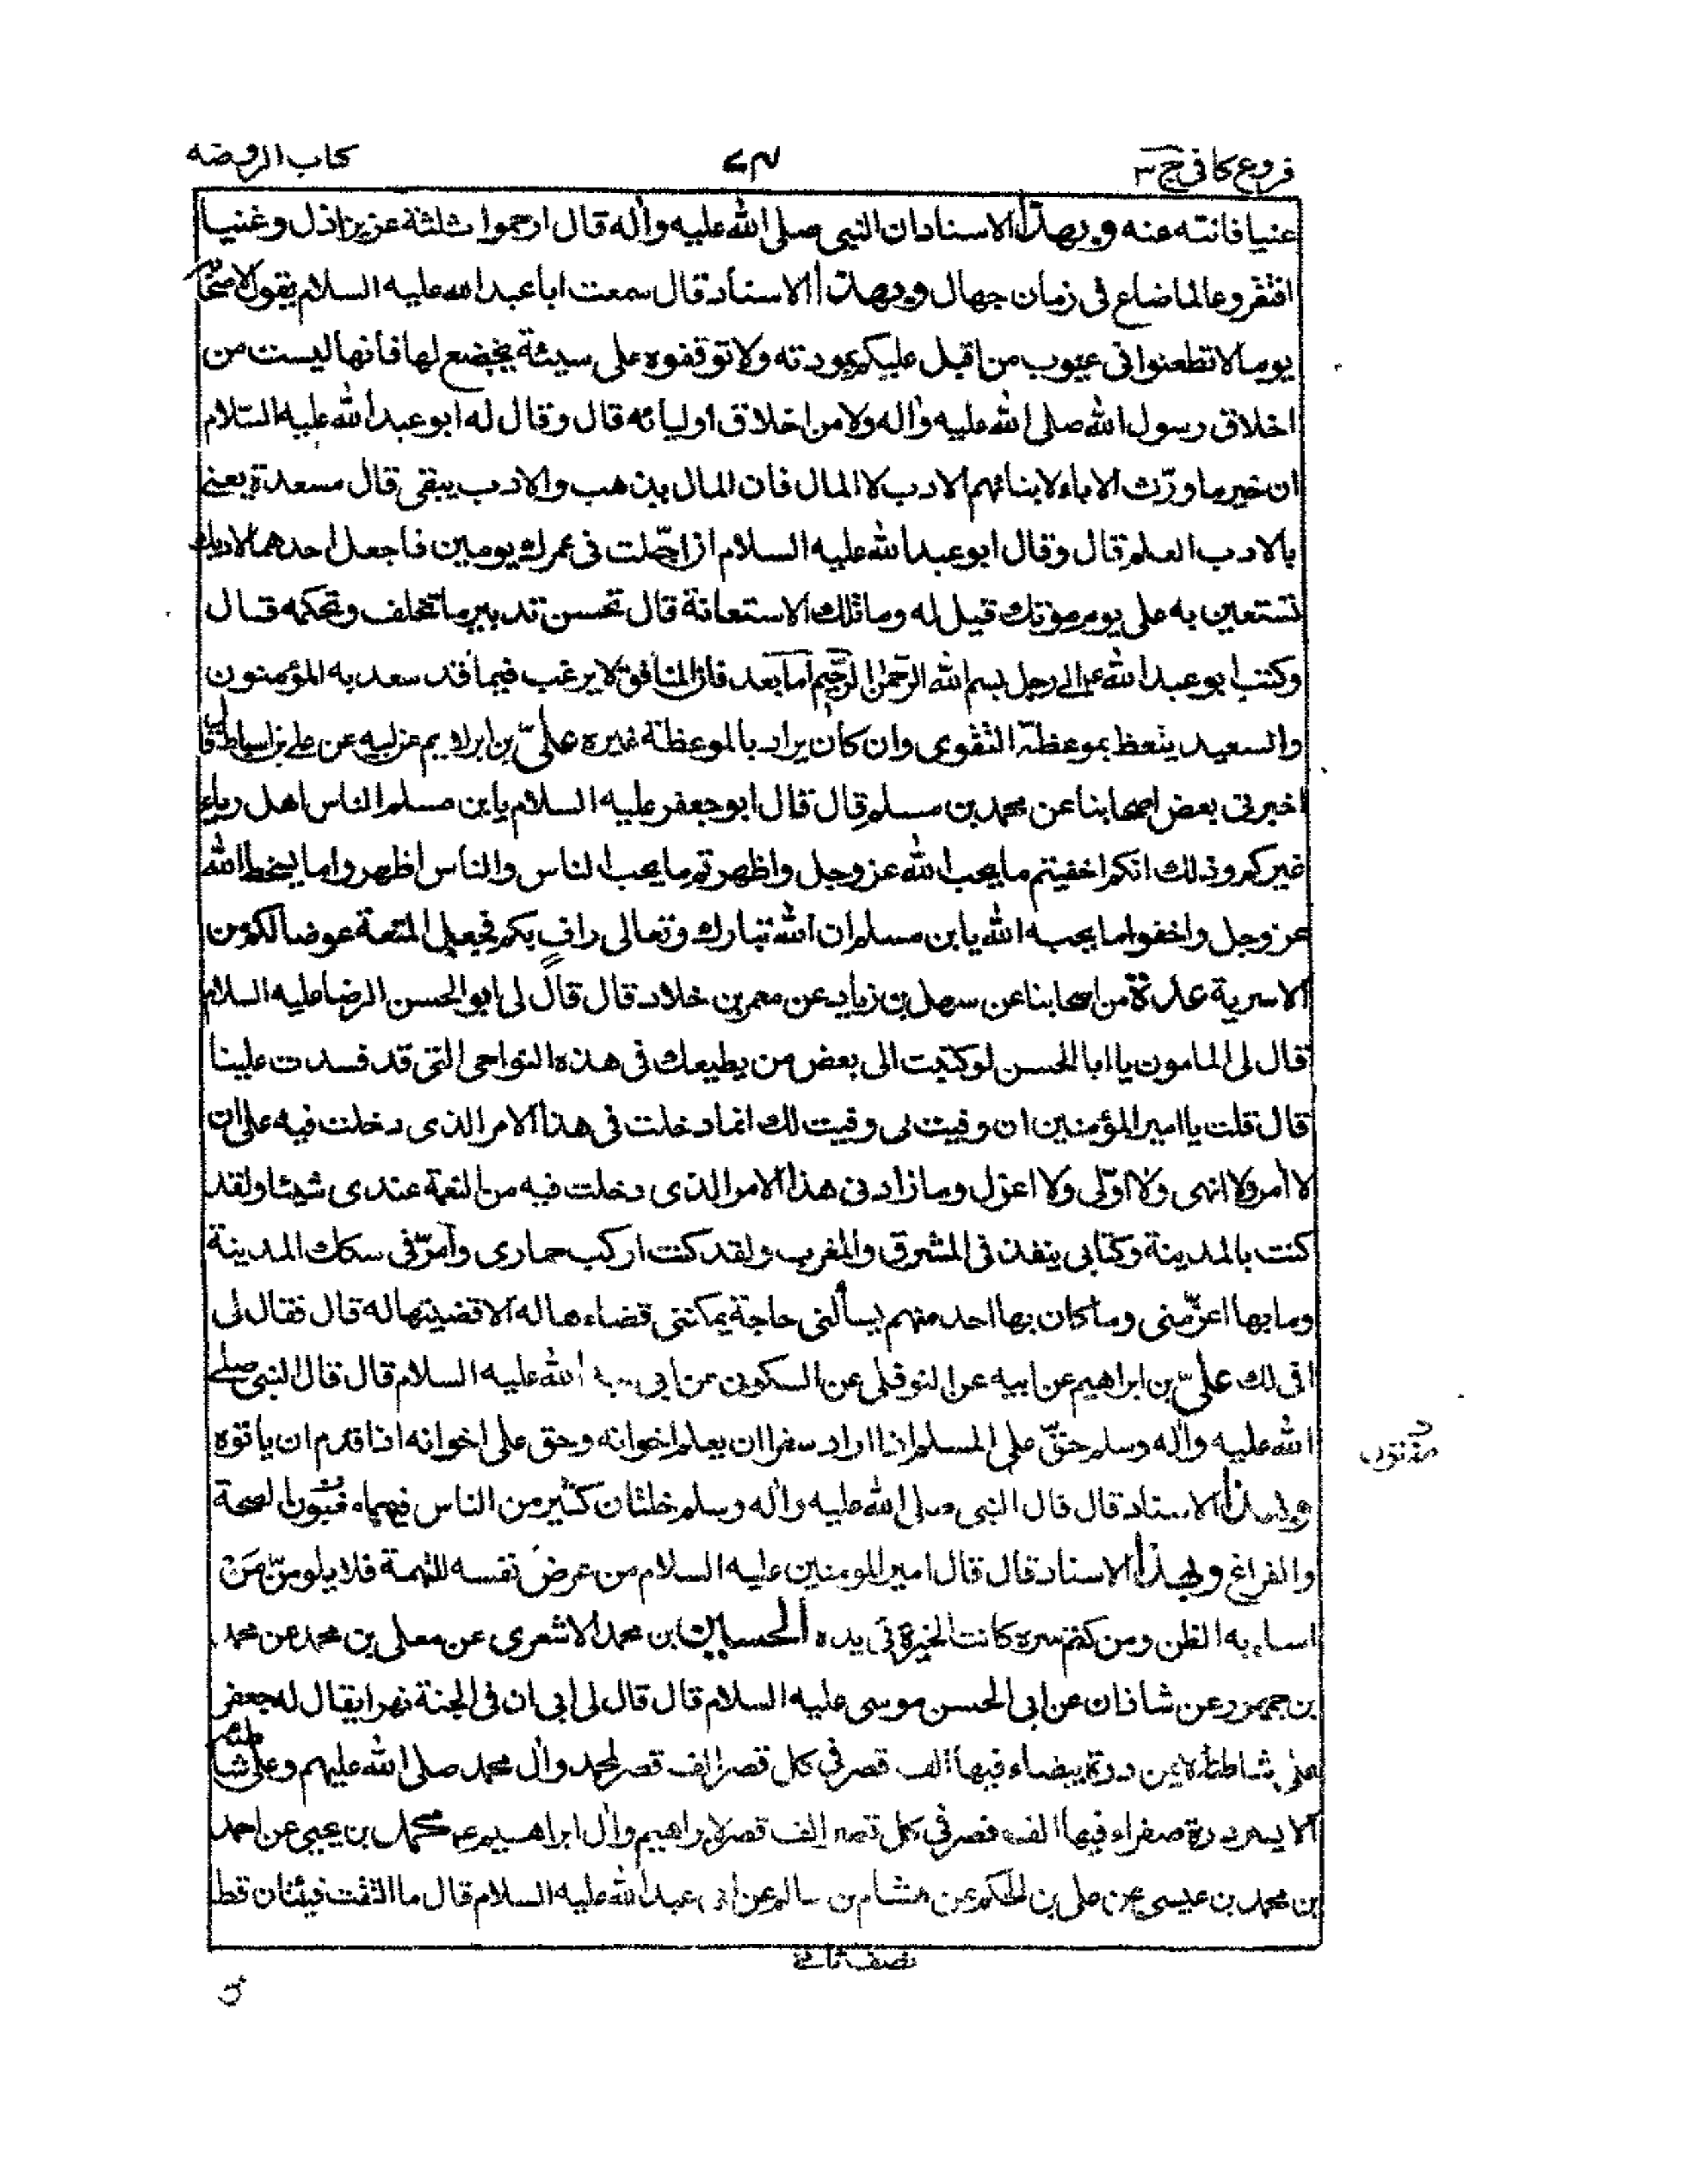 فروع كافى ج ٣
٧٣
كتاب الروضه
غيا فانته عنه وبهذا الاسناد ان النبي صلى الله عليه وآله قال ارحموا ثلثة عزيزا ذل وغنيا
افتقر وعالما ضاع فى زمان جهال وبهذا الاسناد قال سمعت ابا عبد الله عليه السلام يقول لاصحابه
يوما لا تطعنوا فى عيوب من اقبل عليكم بمودته ولا توقفوه على سيئة يخضع لها فانها ليست من
اخلاق رسول الله صلى الله عليه وآله ولا من اخلاق اوليائه قال وقال له ابو عبد الله عليه السلام
ان خير ما ورّث الاباء لابنائهم الادب لا المال فان المال يذهب والادب يبقى قال مسعدة يعنى
بالادب العلم قال وقال ابو عبد الله عليه السلام ان اجّلت فى عمرك يومين فاجعل احدهما لادبك
تستعين به على يوم موتك قيل له وما تلك الاستعانة قال تحسن تدبير ما تخلف وتحكمه قال
وكتب ابو عبد الله ع الى رجل بسم الله الرحمن الرحيم اما بعد فان المنافق لا يرغب فيما قد سعد به المؤمنون
والسعيد يتعظ بموعظة التقوى وان كان يراد بالموعظة غيره علىّ بن ابراهيم عن ابيه عن على بن اسباط قال
اخبرنى بعض اصحابنا عن محمد بن مسلم قال قال ابو جعفر عليه السلام يا بن مسلم الناس اهل رياء
غيركم وذلك انكم اخفيتم ما يحب الله عز وجل واظهرتم ما يحب الناس والناس اظهروا ما يسخط الله
عز وجل واخفوا ما يحبه الله يا بن مسلم ان الله تبارك وتعالى رافٍ بكم فجعل المتعة عوضا لكم من
الاسرية عدة من اصحابنا عن سهل بن زياد عن معمر بن خلاد قال قال لى ابو الحسن الرضا عليه السلام
قال لى المامون يا ابا الحسن لو كتبت الى بعض من يطيعك فى هذه النواحى التى قد فسدت علينا
قال قلت يا امير المؤمنين ان وفيت لى وفيت لك انما دخلت فى هذا الامر الذى دخلت فيه على ان
لا آمر ولا انهى ولا اولّى ولا اعزل وما زاد فى هذا الامر الذى دخلت فيه من النعمة عندى شيئا ولقد
كنت بالمدينة وكتابى ينفذ فى المشرق والمغرب ولقد كنت اركب حمارى وآمرّ فى سكك المدينة
وما بها اعزّ منى وما كان بها احد منهم يسألنى حاجة يمكننى قضاءها له الا قضيتها له قال فقال لى
افى لك علىّ بن ابراهيم عن ابيه عن النوفلى عن السكونى عن ابى عبد الله عليه السلام قال قال النبى صلى
الله عليه وآله وسلم حقّ على المسلم اذا اراد سفرا ان يعلم اخوانه وحق على اخوانه اذا قدم ان ياتوه
وبهذا الاسناد قال قال النبى صلى الله عليه وآله وسلم خلتان كثير من الناس فيهما مغبون الصحة
مفتون
والفراغ وبهذا الاسناد قال قال امير المومنين عليه السلام من عرض نفسه للتهمة فلا يلومنّ من
اساء به الظن ومن كتم سره كانت الخيرة فى يده الحسين بن محمد الاشعرى عن معلى بن محمد عن محمد
بن جمهور عن شاذان عن ابى الحسن موسى عليه السلام قال قال لى ابى ان فى الجنة نهرا يقال له جعفر
على شاطئه الايمن درة بيضاء فيها الف قصر فى كل قصر الف قصر لمحمد وآل محمد صلى الله عليهم وعلى شاطئه
الايسر درة صفراء فيها الف قصر فى كل قصر الف قصر لابراهيم وآل ابراهيم ع محمد بن يحيى عن احمد
بن محمد بن عيسى عن على بن الحكم عن هشام بن سالم عن ابى عبد الله عليه السلام قال ما التقت فئتان قط
نصف ثانى